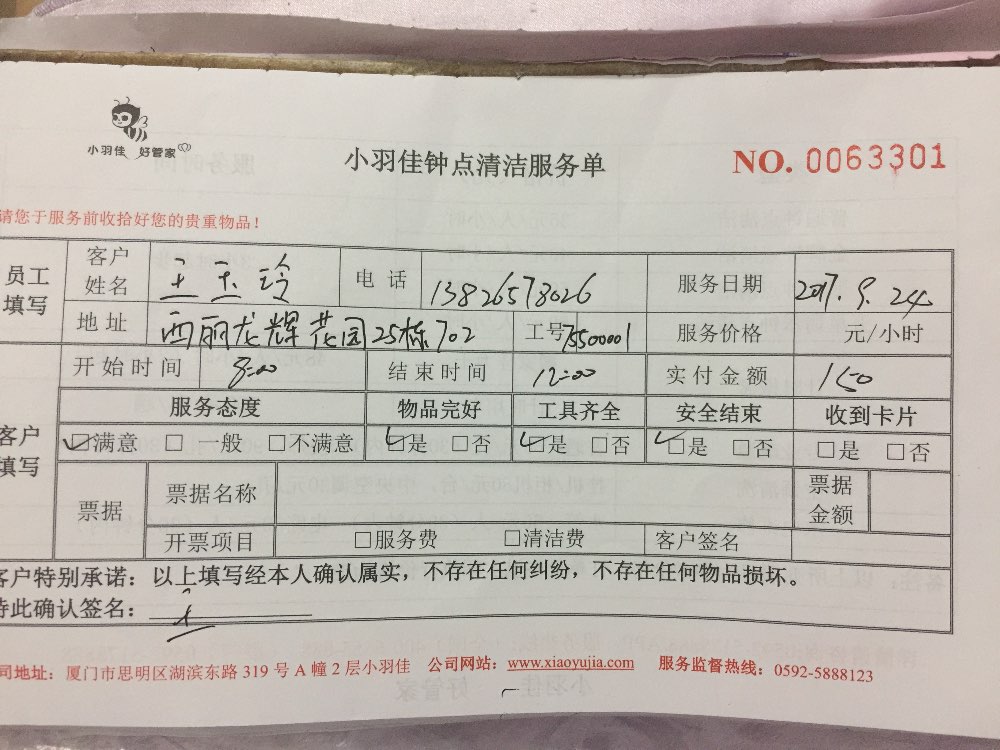 小羽佳 好管家
小羽佳钟点清洁服务单
NO. 0063301
请您于服务前收拾好您的贵重物品！
员工填写 客户姓名 王玉玲 电话 13826578026 服务日期 2017.9.24
地址 西丽龙辉花园25栋702 工号 7550001 服务价格 元/小时
开始时间 8:00 结束时间 12:00 实付金额 150
客户填写 服务态度 物品完好 工具齐全 安全结束 收到卡片
☑满意 □一般 □不满意 ☑是 □否 ☑是 □否 ☑是 □否 □是 □否
票据 票据名称 票据金额
开票项目 □服务费 □清洁费 客户签名
客户特别承诺：以上填写经本人确认属实，不存在任何纠纷，不存在任何物品损坏。
特此确认签名：
司地址：厦门市思明区湖滨东路 319 号 A 幢 2 层小羽佳 公司网站：www.xiaoyujia.com 服务监督热线：0592-5888123